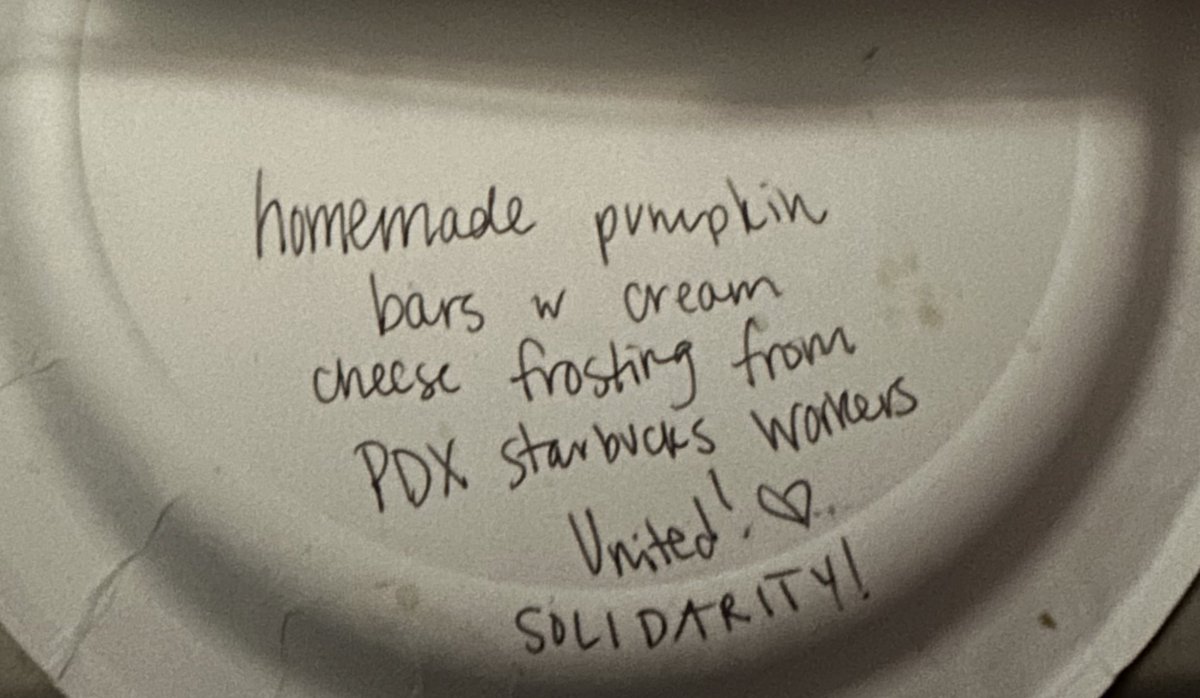 homemade pumpkin
bars w cream
cheese frosting from
PDX starbucks workers
United! ♡
SOLIDARITY!